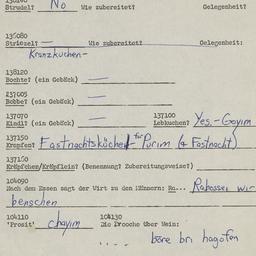 Strudel? No Wie zubereitet? Gelegenheit?
136080
Striezel? — Wie zubereitet? Gelegenheit:
Kranzkuchen-
138120
Bochte? (ein Gebäck) —
237005
Bobbe? (ein Gebäck) —
137070 137100
Kindl? (ein Gebäck) — Lebkuchen? Yes. - Goyim
137150
Krapfen? Fastnachtsküchel- for Purim (& Fastnacht)
137160
Kräpfchen/Kräpflein? (Benennung? Zubereitungsweise?)
104090
Nach dem Essen sagt der Wirt zu den Männern: Ra... Rabosser wir
benschen
104110 104130
'Prosit' chayim Die Brooche über Wein:
.... bore bri hagofen